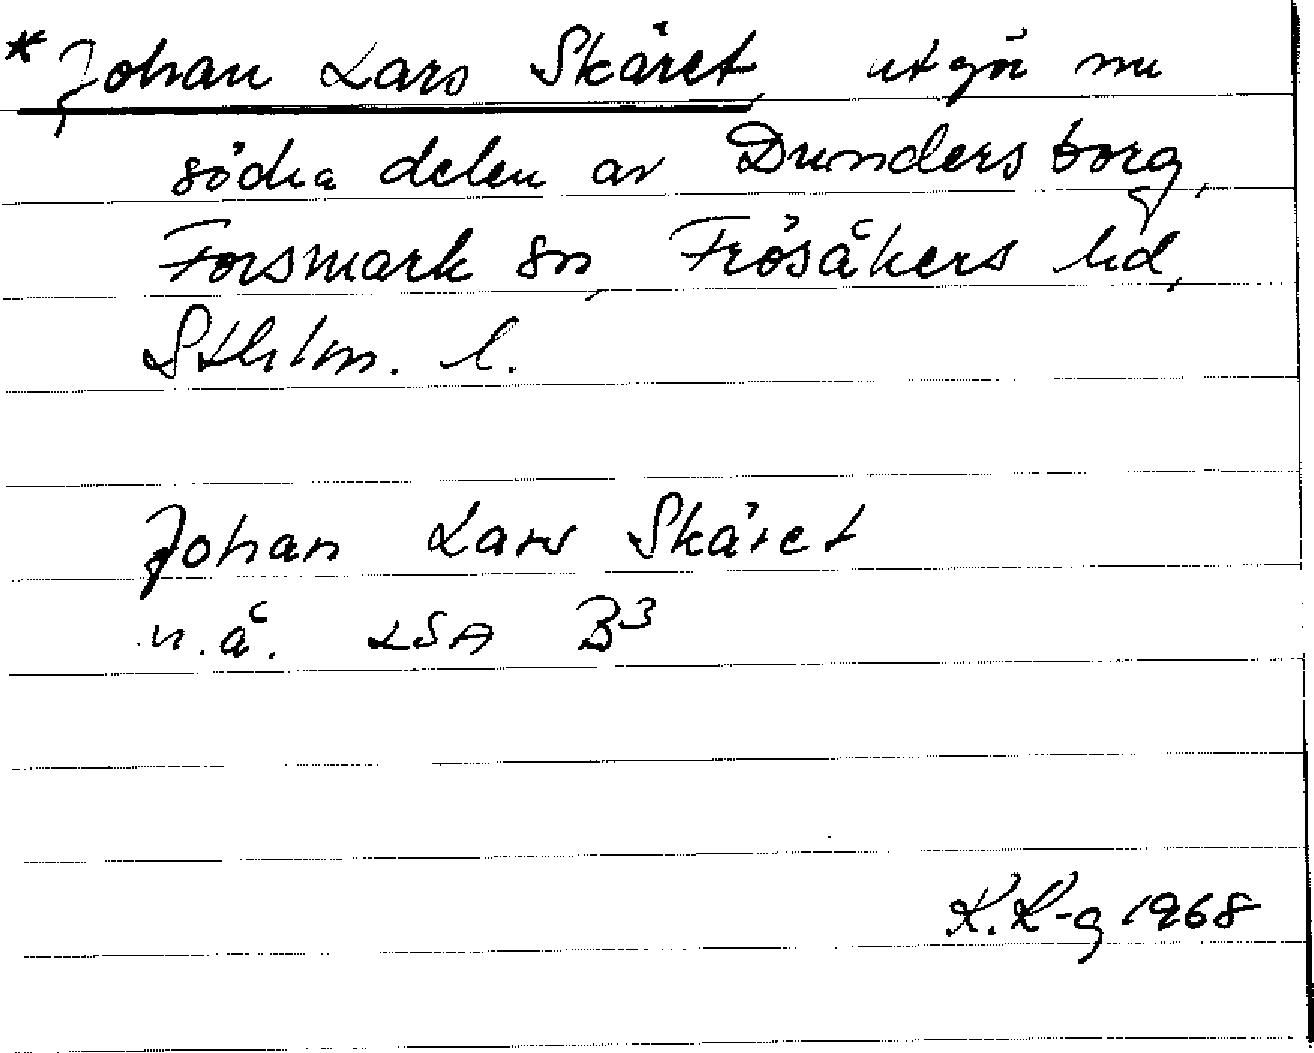 *Johan Lars Skäret, utgör nu
södra delen av Dundersborg,
Forsmark sn, Frösåkers hd,
Sthlm. l.
Johan Lars Skäret
u.å. LSA B3
K.K-g 1968